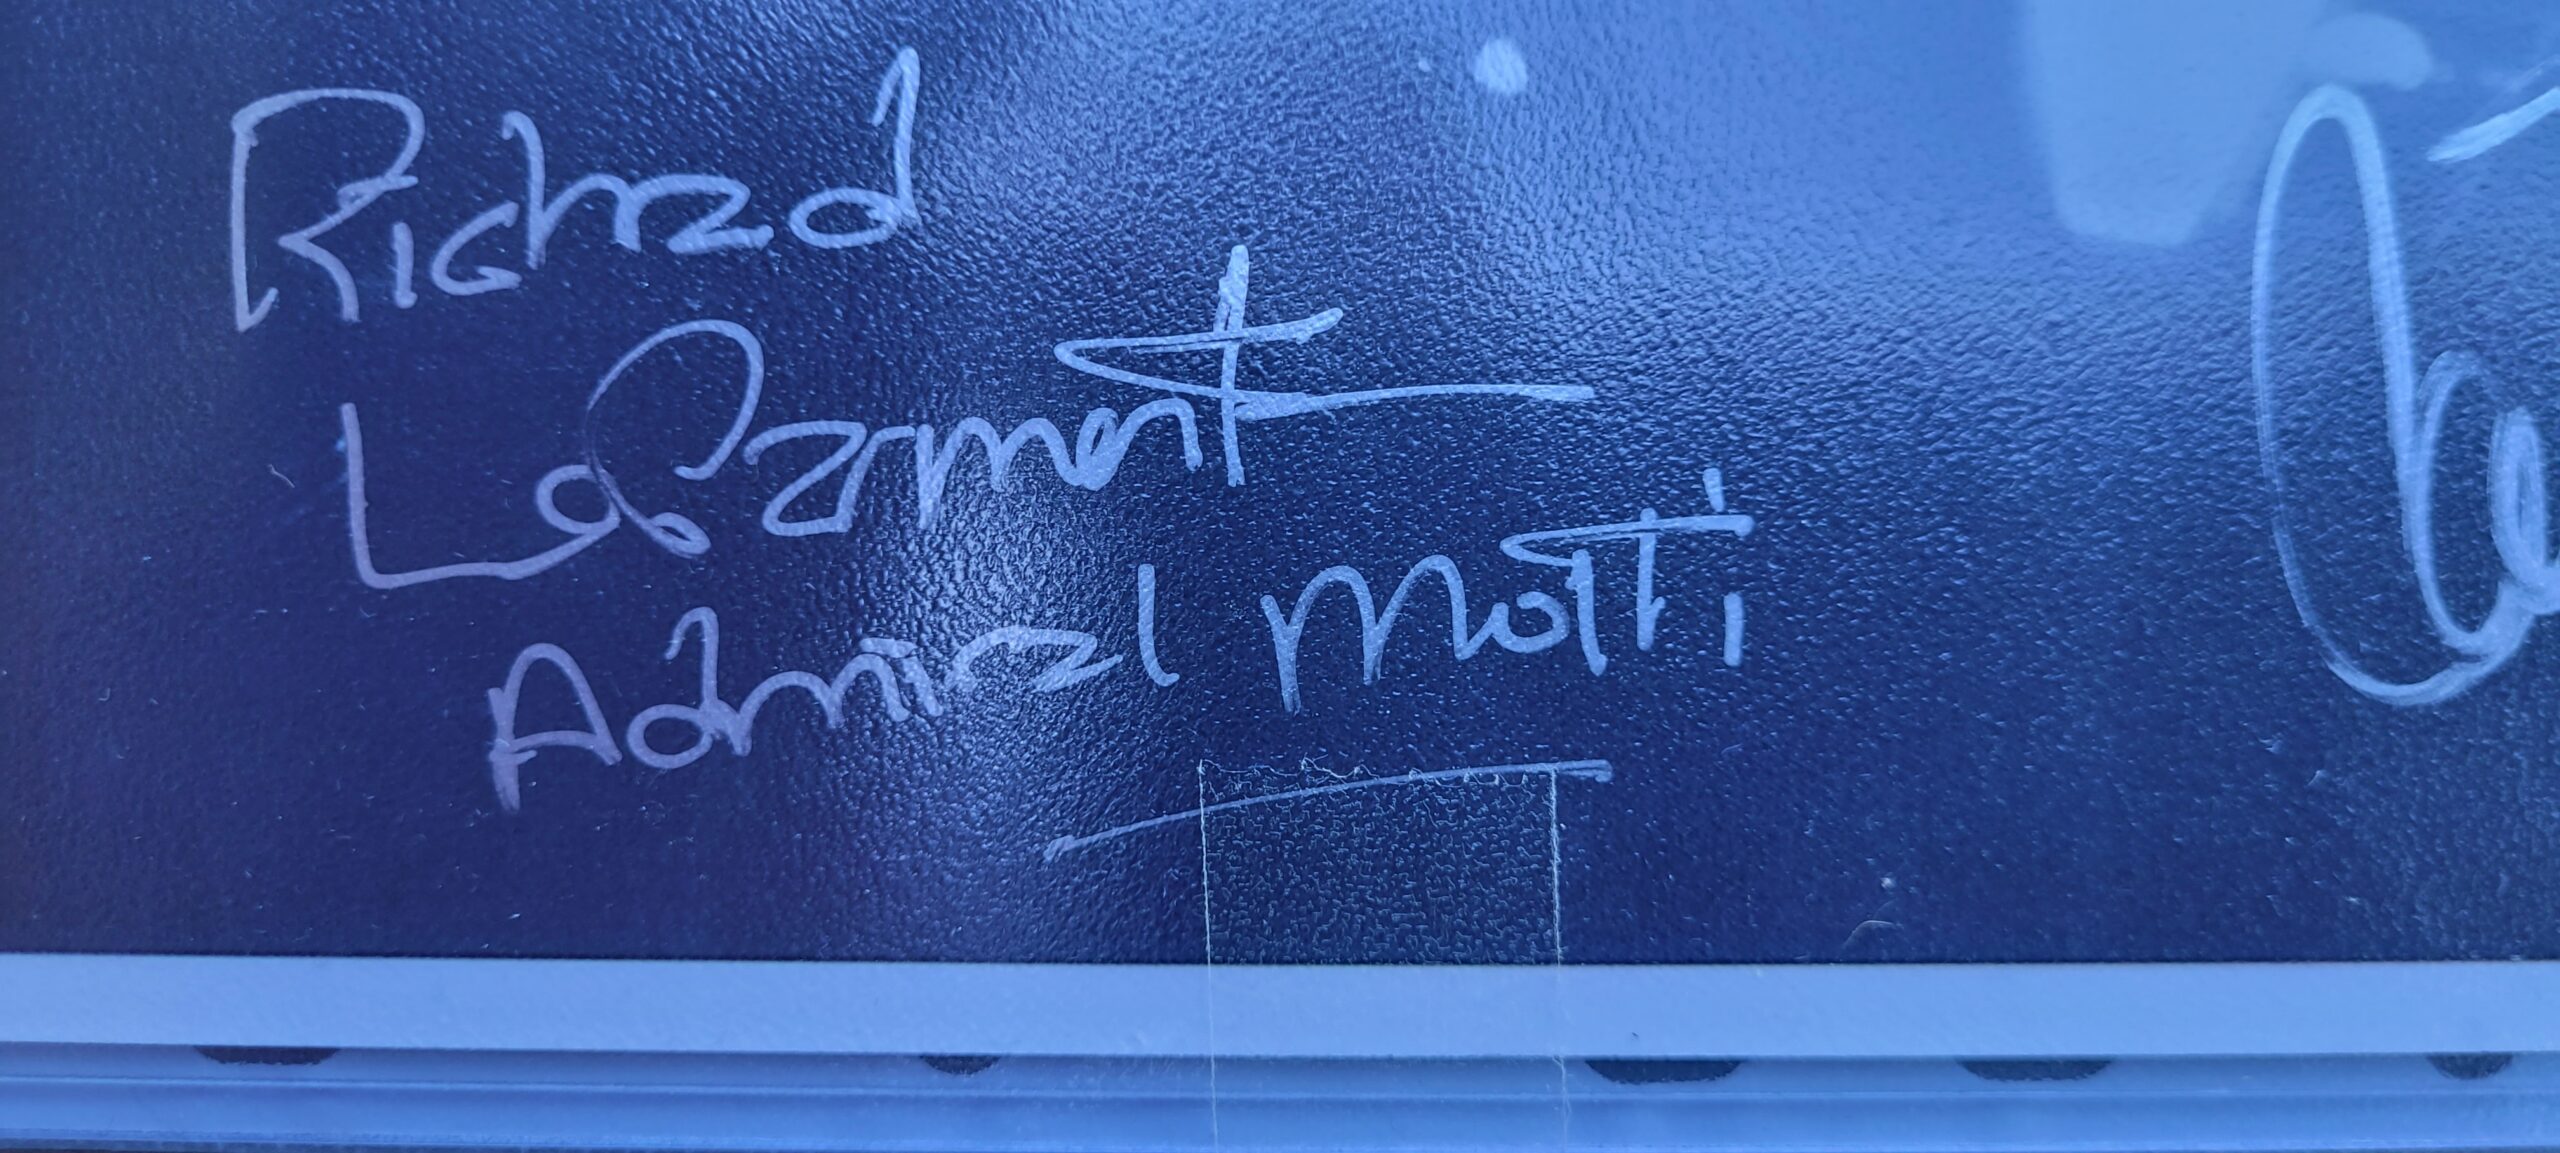 Richard
LeParmentier
Admiral Motti